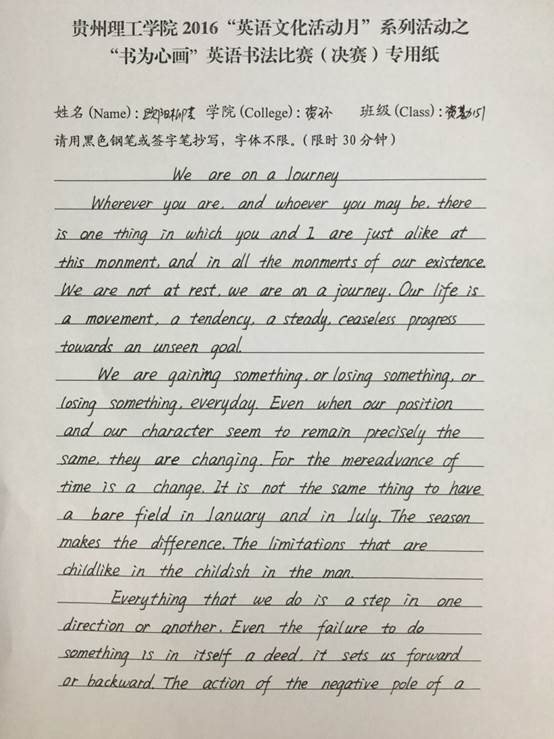 贵州理工学院 2016 “英语文化活动月” 系列活动之
“书为心画” 英语书法比赛（决赛）专用纸
姓名 (Name)：欧阳柳青 学院 (College)：资环 班级 (Class)：资勘151
请用黑色钢笔或签字笔抄写，字体不限。（限时 30 分钟）
We are on a Journey
Wherever you are, and whoever you may be, there
is one thing in which you and I are just alike at
this monment, and in all the monments of our existence.
We are not at rest, we are on a journey. Our life is
a movement, a tendency, a steady, ceaseless progress
towards an unseen goal.
We are gaining something, or losing something, or
losing something, everyday. Even when our position
and our character seem to remain precisely the
same, they are changing. For the mereadvance of
time is a change. It is not the same thing to have
a bare field in January and in July. The season
makes the difference. The limitations that are
childlike in the childish in the man.
Everything that we do is a step in one
direction or another. Even the failure to do
something is in itself a deed. it sets us forward
or backward. The action of the negative pole of a